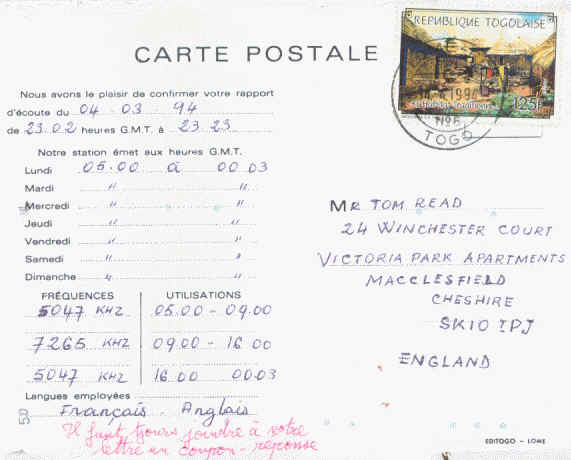 RÉPUBLIQUE TOGOLAISE
125F
1994
TOGO
CARTE POSTALE
Nous avons le plaisir de confirmer votre rapport
d'écoute du 04 - 03 - 94
de 23.02 heures G.M.T. à 23.23
Notre station émet aux heures G.M.T.
Lundi 05.00 à 00 03
Mardi " "
Mercredi " "
Jeudi " "
Vendredi " "
Samedi " "
Dimanche " "
FRÉQUENCES UTILISATIONS
5047 KHZ 05.00 - 09.00
7265 KHZ 09.00 - 16 00
5047 KHZ 16 00 00.03
Langues employées
Français. Anglais
Il faut tjours joindre à votre
lettre un coupon-réponse
MR TOM READ
24 WINCHESTER COURT
VICTORIA PARK APARTMENTS
MACCLESFIELD
CHESHIRE
SK10 1PJ
ENGLAND
EDITOGO - LOME